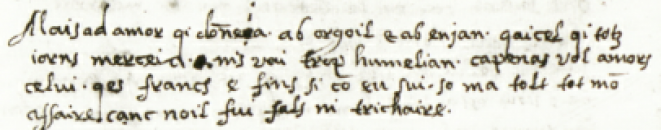 Mais ad amor qi dõneia. ab orgoil e ab enjan. qaicel qi totz
iorns merceia. nis vai trop humelian. capenas vol amors
celui. qes francs e fins si co eu sui. so ma tolt tot mõ
affaire. canc noil fui fals ni trichaire.